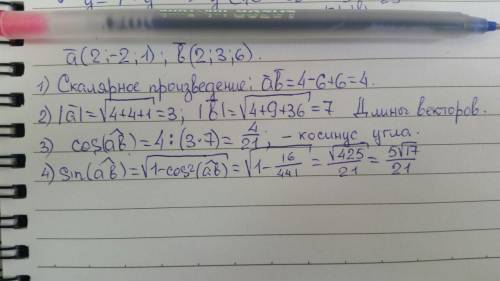 ā(2;-2;1); b̄(2;3;6).
1) Скалярное произведение: āb̄=4-6+6=4.
2) |ā|=√4+4+1=3, |b̄|=√4+9+36=7 Длины векторов.
3) cos(āb̄)=4:(3·7)=4/21; - косинус угла.
4) sin(āb̄)=√1-cos²(āb̄)=√1-16/441=√425/21=5√17/21